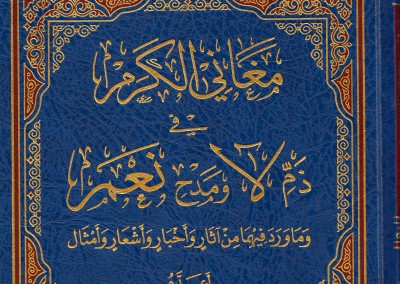 مَغَاني الكَرَم
في
ذَمِّ لَا وَمَدْحِ نَعَمْ
وَمَا وَرَدَ فِيْهِمَا مِنْ آثَارٍ وَأَخْبَارٍ وَأَشْعَارٍ وَأَمْثَال